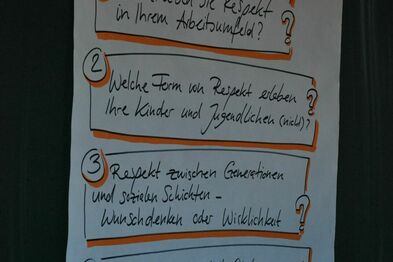 Sie Respekt
in Ihrem Arbeitsumfeld?
?
2
Welche Form von Respekt erleben
Ihre Kinder und Jugendlichen (nicht)?
?
3
Respekt zwischen Generationen
und sozialen Schichten -
Wunschdenken oder Wirklichkeit
?